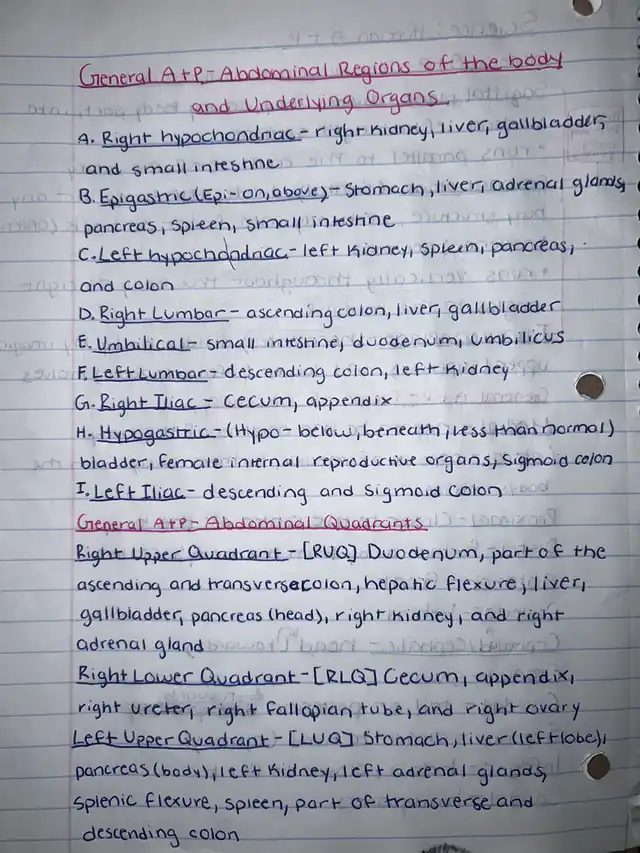 General A+P-Abdominal Regions of the body
and Underlying Organs
A. Right hypochondriac - right kidney, liver, gallbladder,
and small intestine
B. Epigastric (Epi-on, above) - Stomach, liver, adrenal glands,
pancreas, spleen, small intestine
C. Left hypochondriac - left kidney, spleen, pancreas,
and colon
D. Right Lumbar - ascending colon, liver, gallbladder
E. Umbilical - small intestine, duodenum, umbilicus
F. Left Lumbar - descending colon, left kidney
G. Right Iliac - Cecum, appendix
H. Hypogastric - (Hypo-below, beneath, less than normal)
bladder, female internal reproductive organs, sigmoid colon
I. Left Iliac - descending and sigmoid colon
General A+P-Abdominal Quadrants
Right Upper Quadrant - [RUQ] Duodenum, part of the
ascending and transverse colon, hepatic flexure, liver,
gallbladder, pancreas (head), right kidney, and right
adrenal gland
Right Lower Quadrant - [RLQ] Cecum, appendix,
right ureter, right fallopian tube, and right ovary
Left Upper Quadrant - [LUQ] Stomach, liver (left lobe),
pancreas (body), left kidney, left adrenal glands,
splenic flexure, spleen, part of transverse and
descending colon